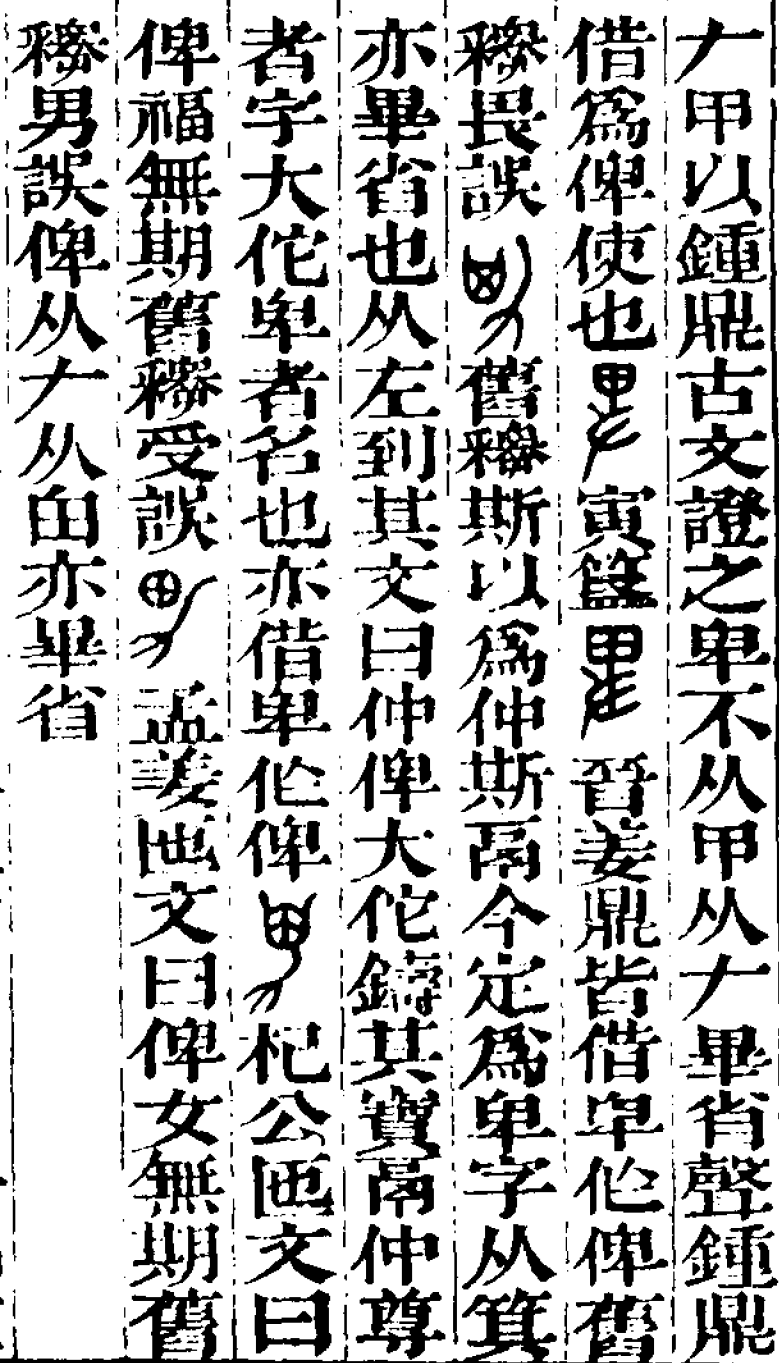 𠂇甲以鍾鼎古文證之卑不从甲从𠂇畢省聲鍾鼎
借爲俾使也寅簋晉姜鼎皆借卑作俾舊
釋畏誤舊釋斯以爲仲斯鬲今定爲卑字从箕
亦畢省也从左到其文曰仲俾大佗鑄其寶鬲仲尊
者字大佗卑者名也亦借卑作俾杞公匜文曰
俾福無期舊釋受誤孟姜匜文曰俾女無期舊
釋男誤俾从𠂇从甶亦畢省